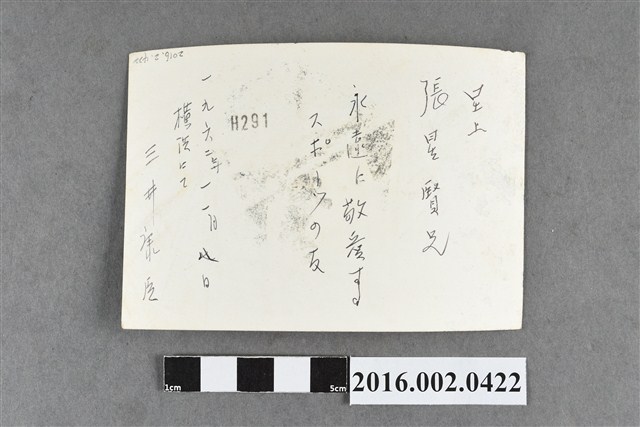 呈上
張星賢兄
永遠に敬愛する
スポーツの友
一九六二年一一月 日
横浜にて
三井康臣
H291
2016.2.422
1cm
5cm
2016.002.0422